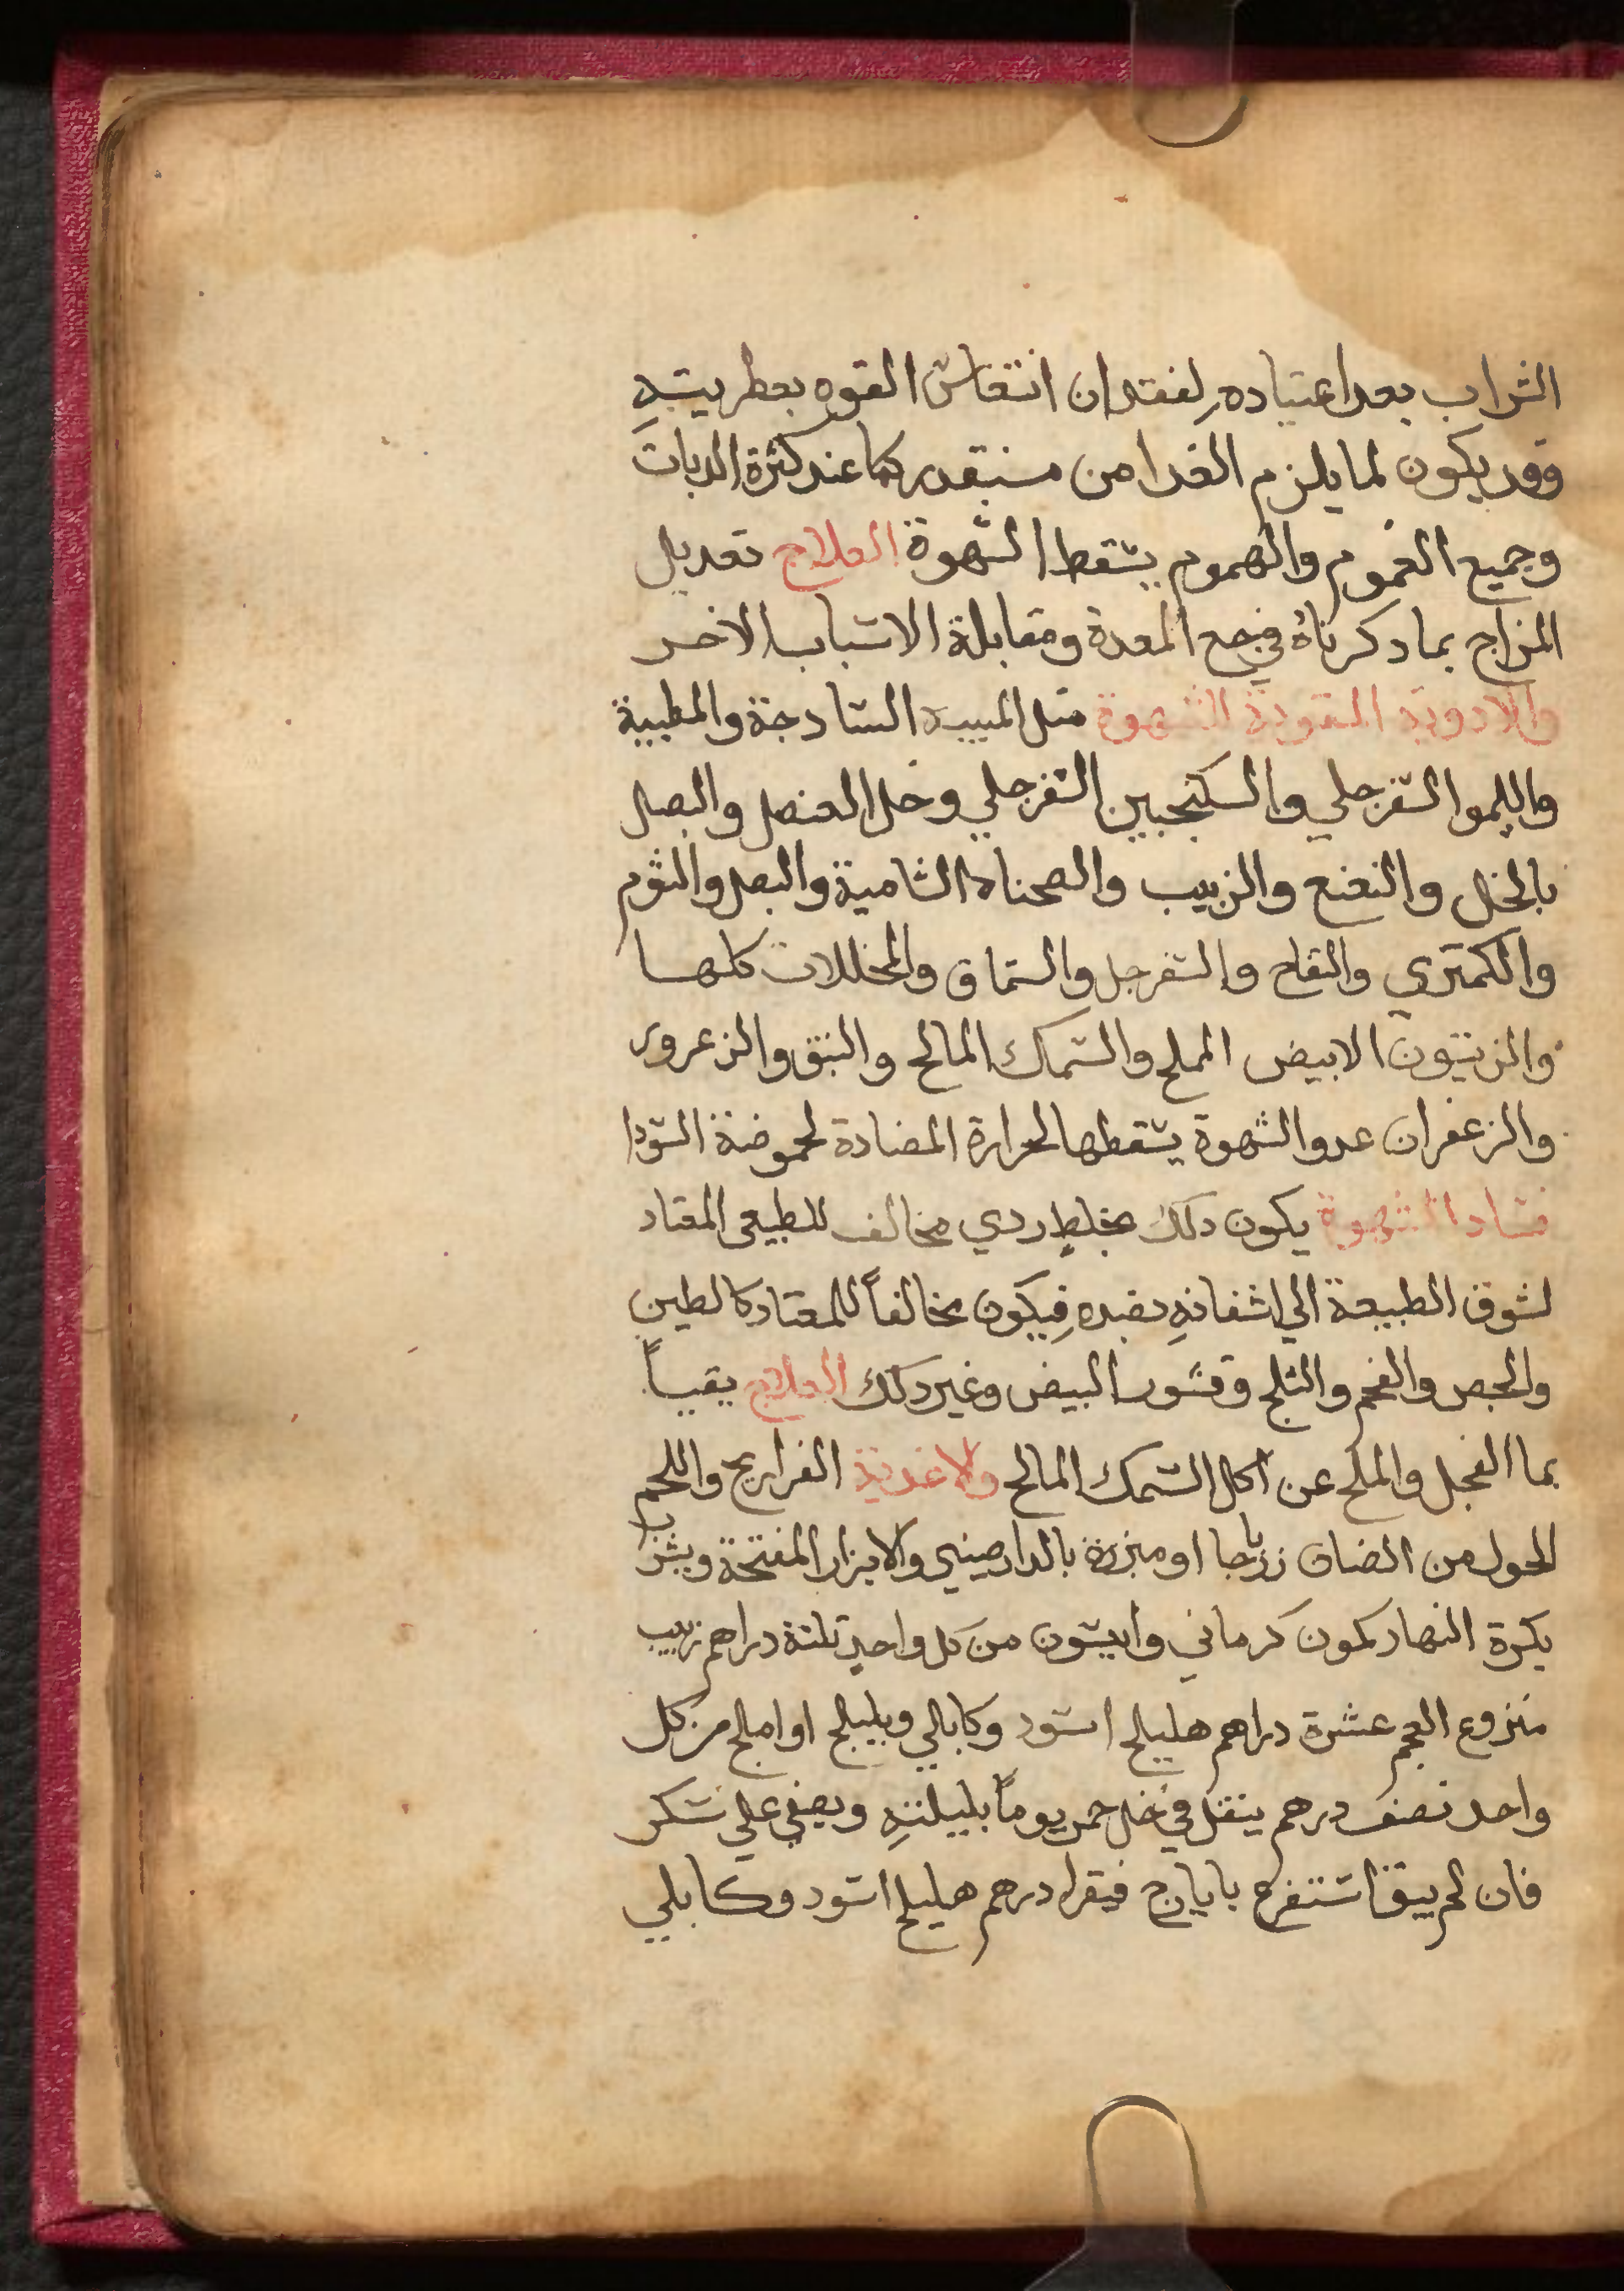 الشراب بعد اعتياده لفقدان انتعاش القوه بعطريته
وقد يكون لما يلزم الغدا من مستقدر كما عند كثرة الدبات
وجميع الغموم والهموم يسقط الشهوة العلاج تعديل
المزاج بما دكرناه في وجع المعدة ومقابلة الاسباب الاخر
والادوية المقوية الشهوة مثل الميبه السادجة والمطيبة
والليمو السفرجلي والسكنجبين السفرجلي وخل العنصل والبصل
بالخل والنعنع والزبيب والصحناه الشامية والبصل والثوم
والكمثري والتفاح والسفرجل والسماق والمخللات كلها
والزيتون الابيض المملح والسمك المالح والنبق والزعرور
والزعفران عدو الشهوة يسقطها لحرارة المضادة لحموضة السودا
فساد الشهوة يكون دلك بخلط ردي مخالف للطبيعي المعتاد
لشوق الطبيعة الي اشفانه بضده فيكون مخالفاً للمعتاد كالطين
والجص والفحم والثلج وقشور البيض وغير دلك العلاج يقياً
بما الفجل والملح عن اكل السمك المالح ولاغدية الفراريج واللحم
الحولي من الضان زيرباجا او مبزرة بالدارصيني والابزار المفتحة ويشرب
بكرة النهار كمون كرماني وانيسون من كل واحد ثلثة دراهم زبيب
منزوع العجم عشرة دراهم هليلج اسود وكابلي وبليلج او املج من كل
واحد نصف درهم ينقل في خل خمر يوماً بليلته ويصفي علي سكر
فان لم يبق استفرع باياراج فيقرا درهم هليلج اسود وكابلي